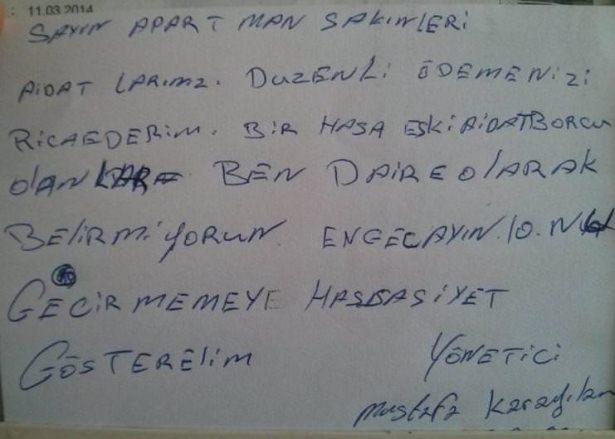 11.03.2014
SAYIN APARTMAN SAKINLERİ
AİDAT LARIMZI DUZENLİ ÖDEMENİZİ
RİCAEDERİM. BİR HASA ESKİ AİDATBORCU
OLAN BEN DAİREOLARAK
BELİRMİYORUN ENGEÇAYIN 10.NU
GEÇİRMEMEYE HASSASİYET
GÖSTERELİM YÖNETİCİ
Mustafa